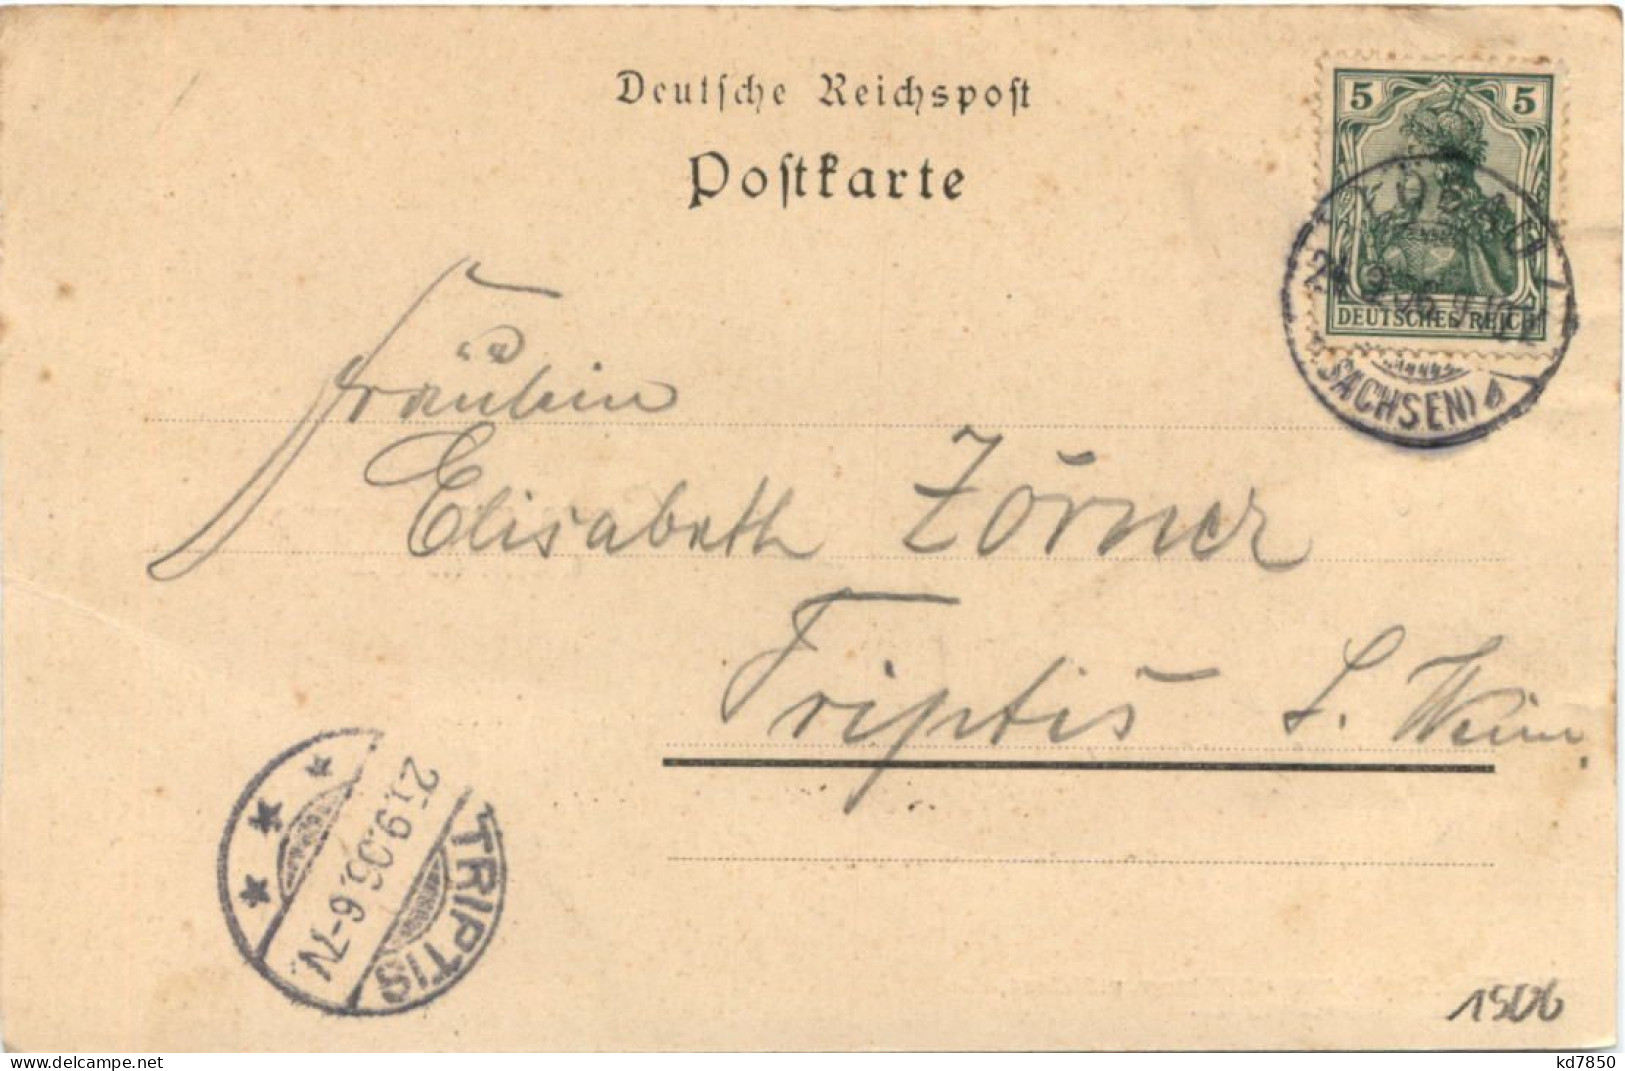 Deutsche Reichspost
Postkarte
5 5
DEUTSCHES REICH
LÖBAU
24.9.06
(SACHSEN)
Fräulein
Elisabeth Zörner
Triptis S. Weim.
TRIPTIS
25.9.06. 6-7N.
1506
www.delcampe.net
kd7850